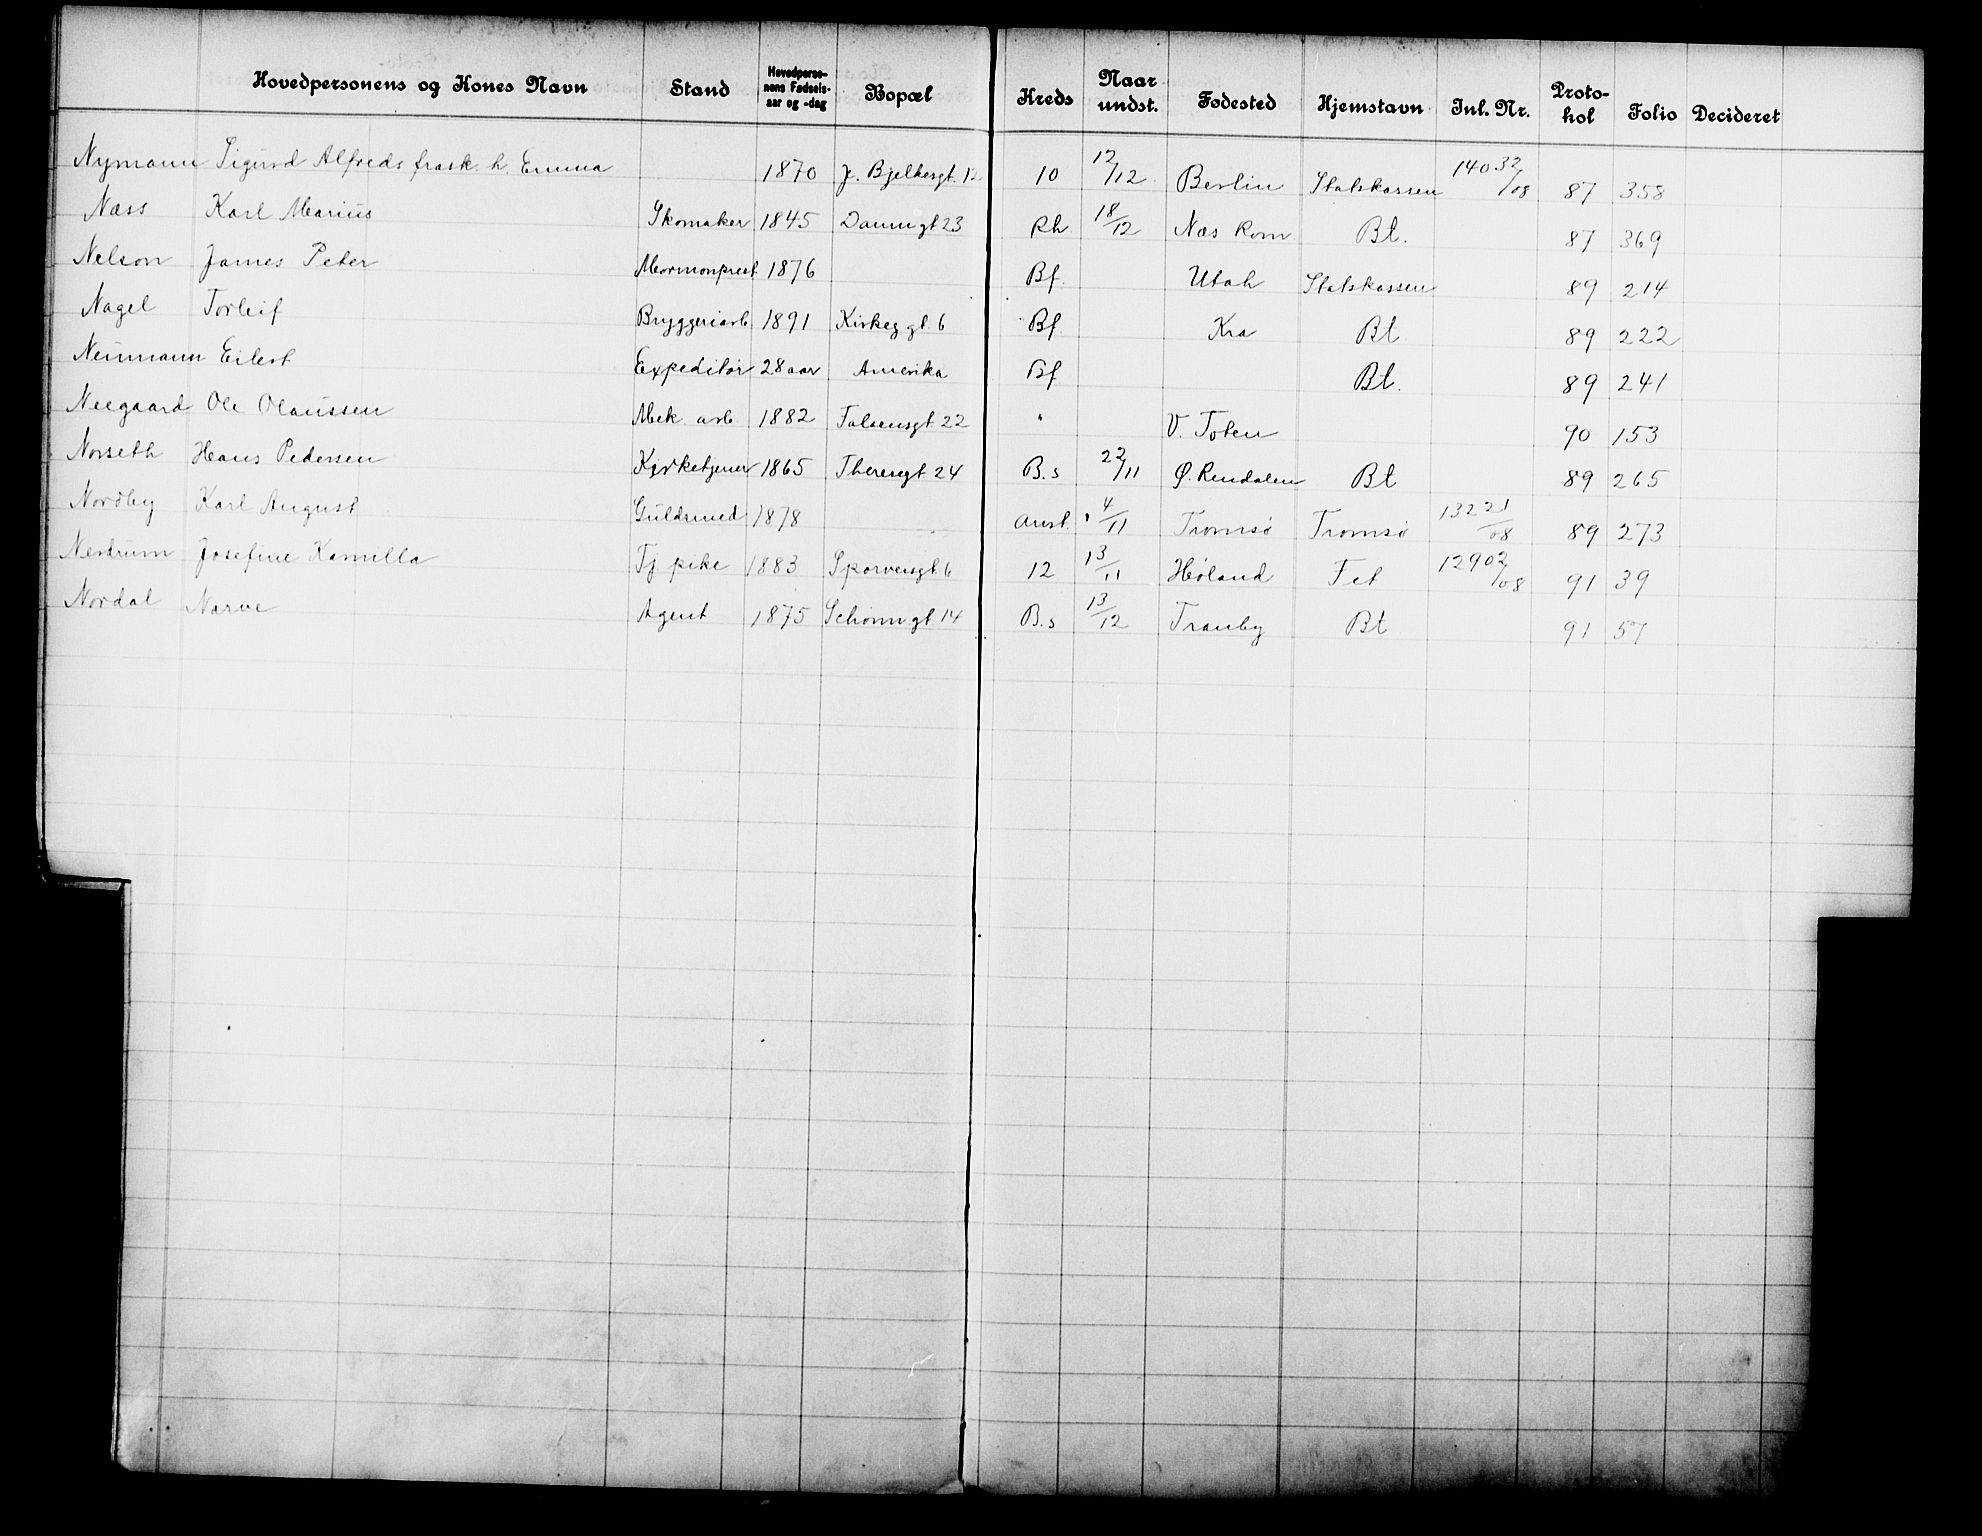 Hovedpersonens og Kones Navn Stand Hovedperso-nens Fødsels-aar og -dag Bopæl Kreds Naar undst. Fødested Hjemstavn Inl. Nr. Proto-kol Folio Decideret
Nymann Sigurd Alfreds frask. h. Emma 1870 J. Bjelkesgt. 12 10 12/12 Berlin Statskassen 14032/08 87 358
Næss Karl Marius Skomaker 1845 Dannigt 23 Rh 18/12 Næs Rom Bt. 87 369
Nelson James Peter Mormonprest 1876 Bf. Utah Statskassen 89 214
Nagel Torleif Bryggeriarb. 1891 Kirkeg gt. 6 Bf. Kra Bt 89 222
Neumann Eilert Expeditør 28 aar Amerika Bf Bt. 89 241
Neegaard Ole Olaussen Mek. arb 1882 Falsensgt. 22 " V. Toten 90 153
Norseth Hans Pedersen Kirketjener 1865 Theresgt 24 B.s 22/11 Ø. Rendalen Bt 89 265
Nordby Karl August Guldsmed 1878 Anst. 4/11 Tromsø Tromsø 13221/08 89 273
Nerdrum Josefine Kamilla Tj. pike 1883 Sporveisgt. 6 12 13/11 Høland Fet 12902/08 91 39
Nordal Narve Agent 1875 Schønn gt 14 B.s 13/12 Tranby Bt 91 57